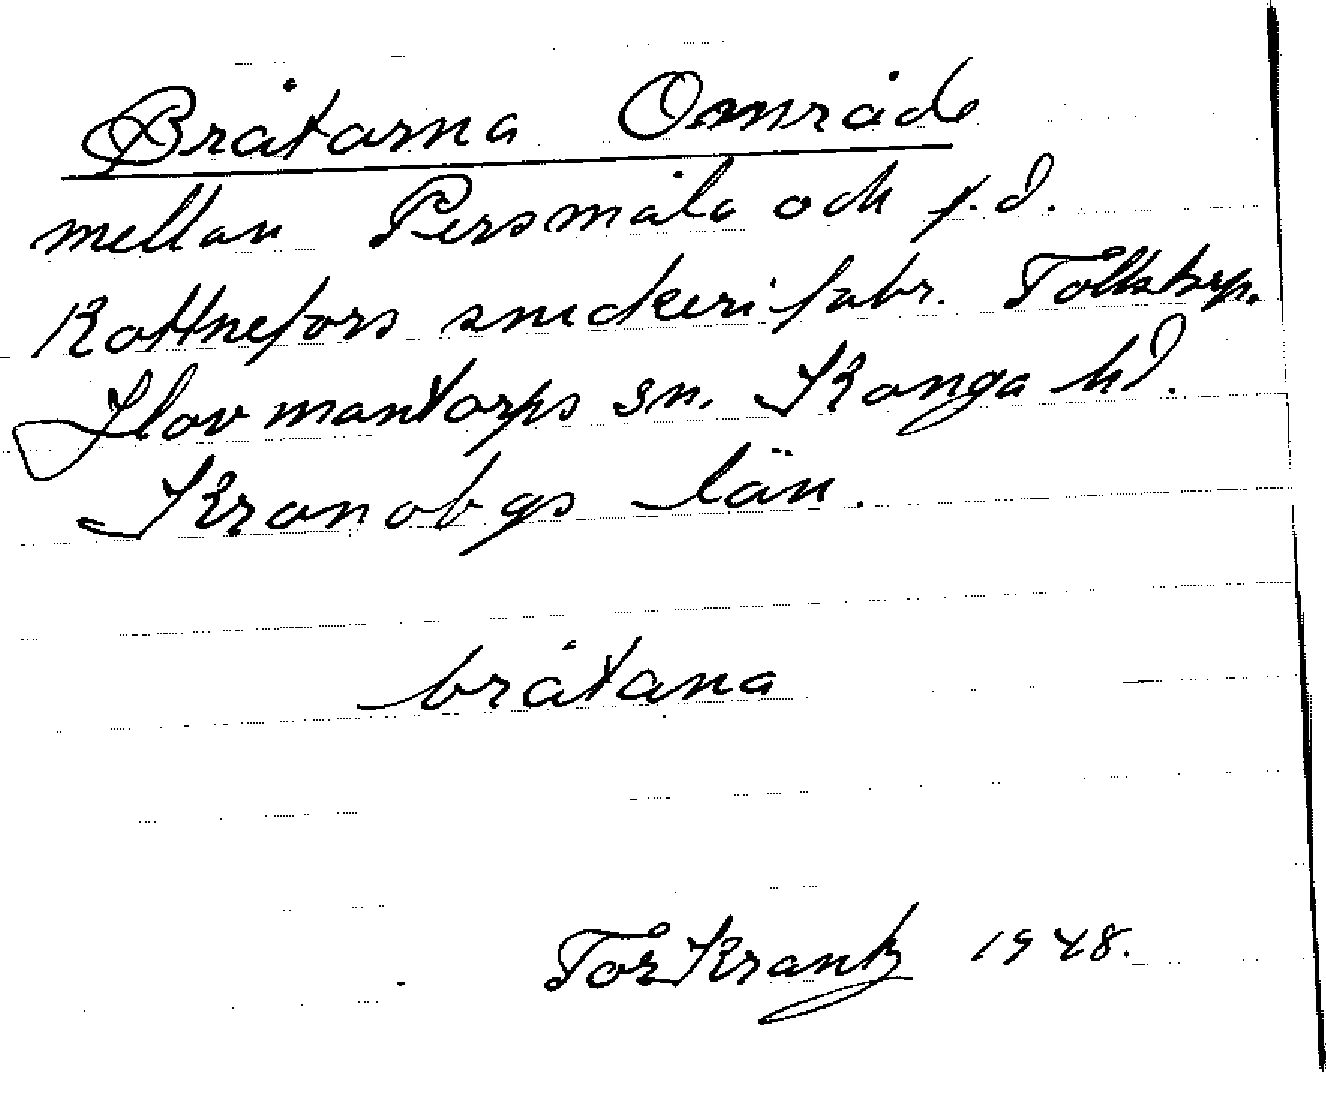 Bråtarna Område
mellan Persmåla och f.d.
Kottnefors snickerifabr. Tollstorp.
Hovmantorps sn. Konga hd.
Kronobgs län.
bråtana
Tor Krantz 1948.